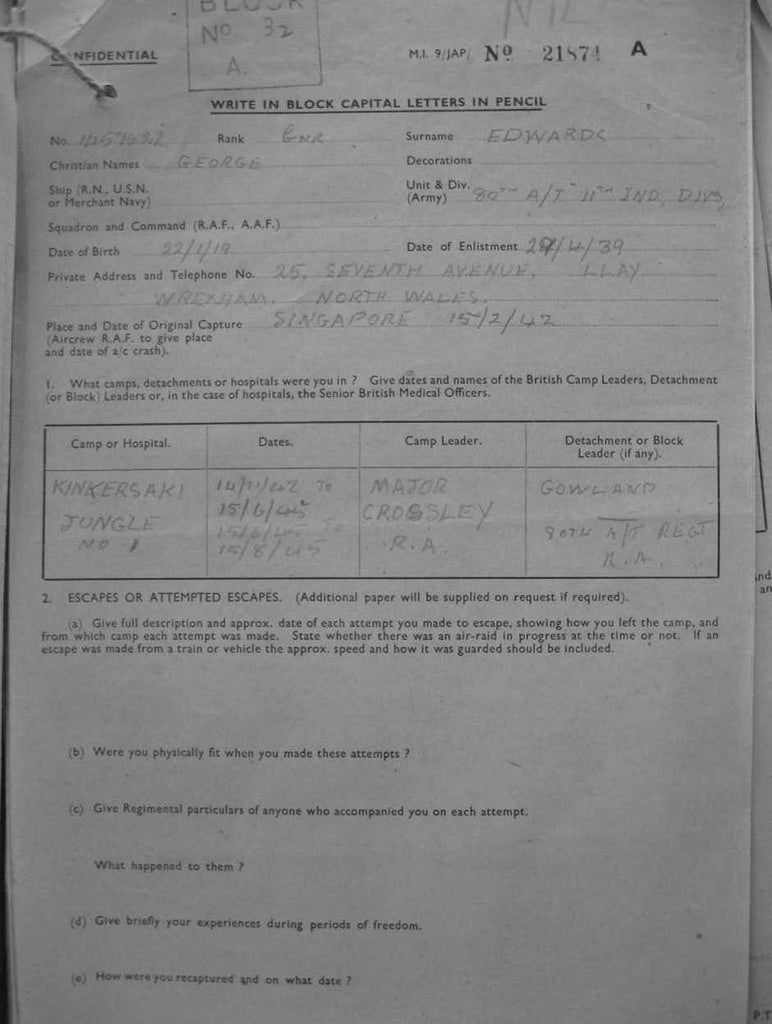 BLOCK
Nº 32
A.
NIL
CONFIDENTIAL
M.I. 9/JAP/ Nº 21874 A
WRITE IN BLOCK CAPITAL LETTERS IN PENCIL
No. Rank GNR Surname EDWARDS
Christian Names GEORGE Decorations
Ship (R.N., U.S.N.
or Merchant Navy)
Unit & Div. 80TH A/T 11TH IND, DIV,
(Army)
Squadron and Command (R.A.F., A.A.F.)
Date of Birth 22/1/19 Date of Enlistment 29/4/39
Private Address and Telephone No. 25, SEVENTH AVENUE, LLAY
WREXHAM. NORTH WALES.
Place and Date of Original Capture SINGAPORE 15/2/42
(Aircrew R.A.F. to give place
and date of a/c crash).
1. What camps, detachments or hospitals were you in ? Give dates and names of the British Camp Leaders, Detachment
(or Block) Leaders or, in the case of hospitals, the Senior British Medical Officers.
Camp or Hospital. Dates. Camp Leader. Detachment or Block
Leader (if any).
KINKERSAKI 14/11/42 TO MAJOR GOWLAND
JUNGLE 15/6/45 CROSSLEY
NO 1 15/6/45 TO R.A. 80TH A/T REGT
15/8/45 R.A.
2. ESCAPES OR ATTEMPTED ESCAPES. (Additional paper will be supplied on request if required).
(a) Give full description and approx. date of each attempt you made to escape, showing how you left the camp, and
from which camp each attempt was made. State whether there was an air-raid in progress at the time or not. If an
escape was made from a train or vehicle the approx. speed and how it was guarded should be included.
(b) Were you physically fit when you made these attempts ?
(c) Give Regimental particulars of anyone who accompanied you on each attempt.
What happened to them ?
(d) Give briefly your experiences during periods of freedom.
(e) How were you recaptured and on what date ?
P.T